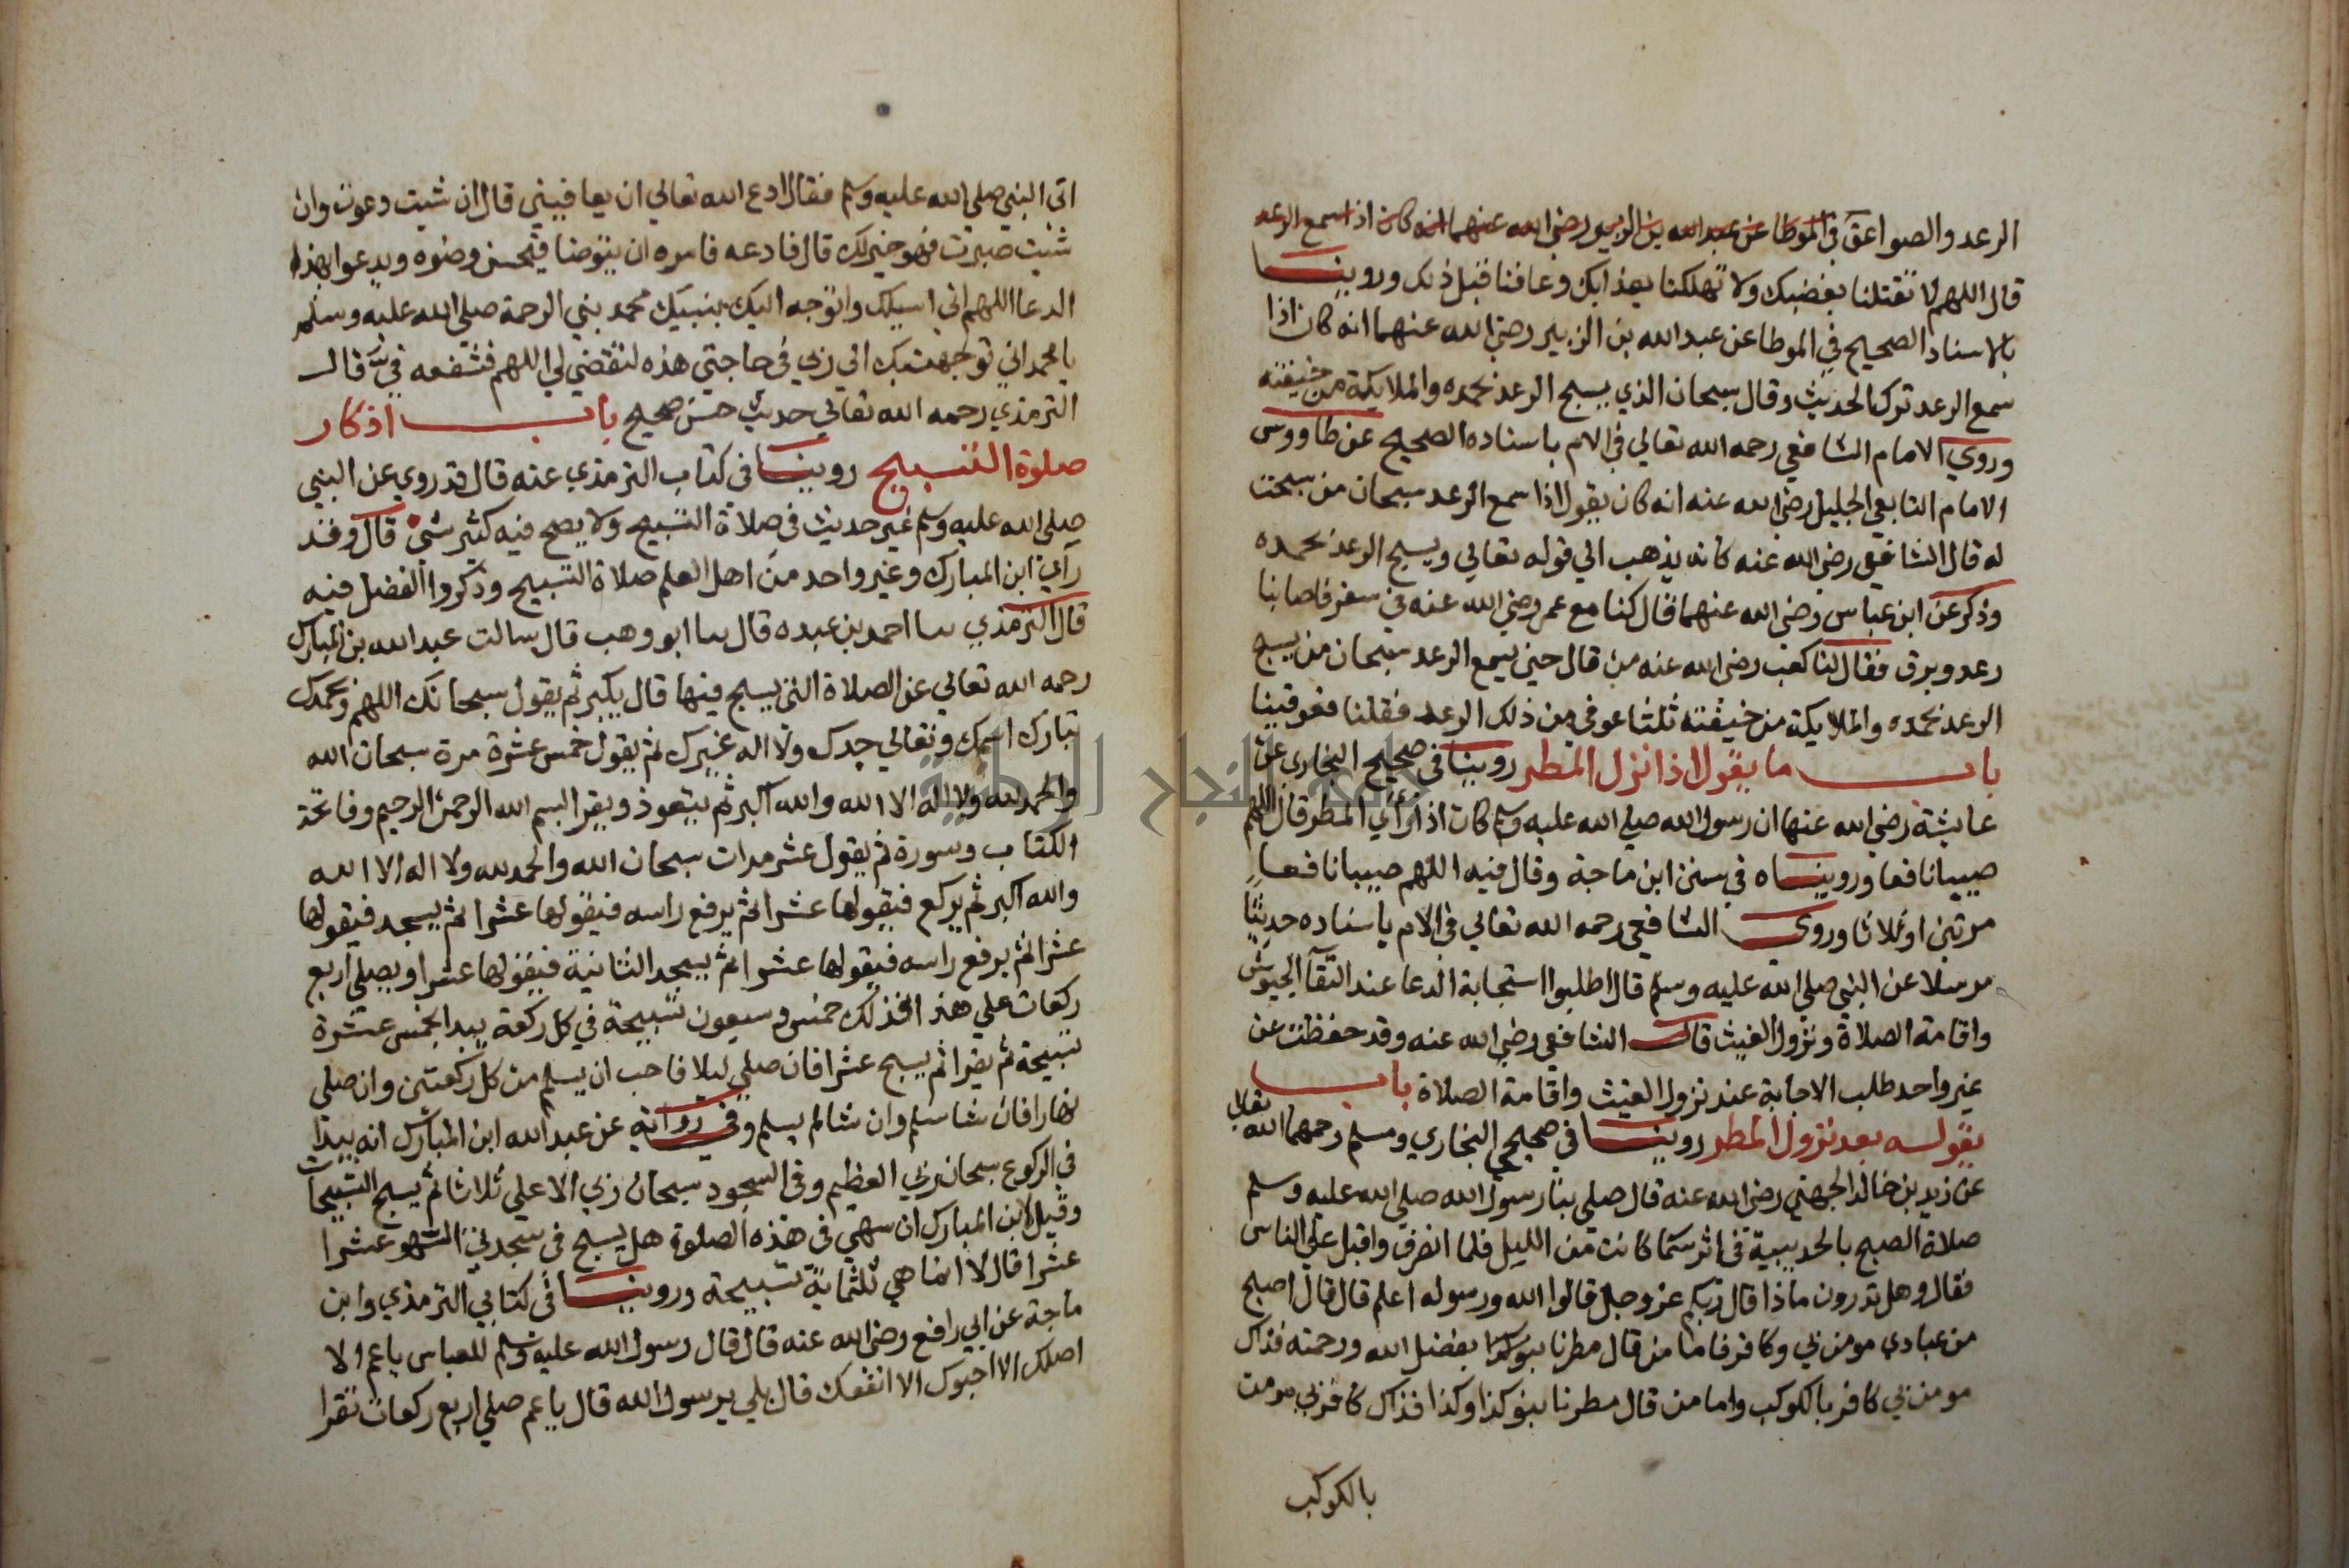 الرعد والصواعق في الموطا عن عبد الله بن الزبير رضي الله عنهما انه كان اذا سمع الرعد
قال اللهم لا تقتلنا بغضبك ولا تهلكنا بعذابك وعافنا قبل ذلك وروينا
بالاسناد الصحيح في الموطا عن عبد الله بن الزبير رضي الله عنهما انه كان اذا
سمع الرعد ترك الحديث وقال سبحان الذي يسبح الرعد بحمده والملايكة من خيفته
وروي الامام الشافعي رحمه الله تعالي في الام باسناده الصحيح عن طاووس
الامام التابعي الجليل رضي الله عنه انه كان يقول اذا سمع الرعد سبحان من سبحت
له قال الشافعي رضي الله عنه كانه يذهب الي قوله تعالي ويسبح الرعد بحمده
وذكر عن ابن عباس رضي الله عنهما قال كنا مع عمر رضي الله عنه في سفر فاصابنا
رعد وبرق فقال لنا كعب رضي الله عنه من قال حين يسمع الرعد سبحان من يسبح
الرعد بحمده والملايكة من خيفته ثلثا عوفي من ذلك الرعد فقلنا فعوفينا
باب ما يقول اذا نزل المطر روينا في صحيح البخاري عن
عايشة رضي الله عنها ان رسول الله صلي الله عليه وسلم كان اذا رأي المطر قال اللهم
صيبا نافعا ورويناه في سنن ابن ماجة وقال فيه اللهم صيبا نافعا
مرتين او ثلاثا وروي الشافعي رحمه الله تعالي في الام باسناده حديثا
مرسلا عن النبي صلي الله عليه وسلم قال اطلبوا استجابة الدعا عند التقآ الجيوش
واقامة الصلاة ونزول الغيث قال الشافعي رضي الله عنه وقد حفظت عن
غير واحد طلب الاجابة عند نزول الغيث واقامة الصلاة باب
يقوله بعد نزول المطر روينا في صحيحي البخاري ومسلم رحمهما الله تعالي
عن زيد بن خالد الجهني رضي الله عنه قال صلي بنا رسول الله صلي الله عليه وسلم
صلاة الصبح بالحديبية في اثر سما كانت من الليل فلما انصرف واقبل علي الناس
فقال وهل تدرون ماذا قال ربكم عز وجل قالوا الله ورسوله اعلم قال قال اصبح
من عبادي مومن بي وكافر فاما من قال مطرنا بفضل الله ورحمته فذاك
مومن بي كافر بالكوكب واما من قال مطرنا بنو كذا وكذا فذاك كافر بي مومن
بالكوكب
اتي النبي صلي الله عليه وسلم فقال ادع الله تعالي ان يعافيني قال ان شيت دعوت وان
شيت صبرت فهو خير لك قال فادعه فامره ان يتوضا فيحسن وضوه ويدعوا بهذا
الدعا اللهم اني اسيلك واتوجه اليك بنبيك محمد نبي الرحمة صلي الله عليه وسلم
يا محمد اني توجهت بك الي ربي في حاجتي هذه لتقضي لي اللهم فشفعه في قال
الترمذي رحمه الله تعالي حديث حسن صحيح باب اذكار
صلوة التسبيح روينا في كتاب الترمذي عنه قال قد روي عن النبي
صلي الله عليه وسلم غير حديث في صلاة التسبيح ولا يصح فيه كثير شي قال وقد
رأي ابن المبارك وغير واحد من اهل العلم صلاة التسبيح وذكروا الفضل فيه
قال الترمذي سا احمد بن عبده قال سا ابو وهب قال سالت عبد الله بن المبارك
رحمه الله تعالي عن الصلاة التي يسبح فيها قال يكبر ثم يقول سبحانك اللهم وبحمدك
تبارك اسمك وتعالي جدك ولا اله غيرك ثم يقول خمس عشرة مرة سبحان الله
والحمد لله ولا اله الا الله والله اكبر ثم يتعوذ ويقرا بسم الله الرحمن الرحيم وفاتحة
الكتاب وسورة ثم يقول عشر مرات سبحان الله والحمد لله ولا اله الا الله
والله اكبر ثم يركع فيقولها عشرا ثم يرفع راسه فيقولها عشرا ثم يسجد فيقولها
عشرا ثم يرفع راسه فيقولها عشرا ثم يسجد الثانية فيقولها عشرا ويصلي اربع
ركعات علي هذا فذلك خمس وسبعون تسبيحة في كل ركعة يبدا بخمس عشرة
تسبيحة ثم يقرا ثم يسبح عشرا فان صلي ليلا فاحب ان يسلم من كل ركعتين وان صلي
نهارا فان شا سلم وان شا لم يسلم وفي رواية عن عبد الله ابن المبارك انه يبدا
في الركوع سبحان ربي العظيم وفي السجود سبحان ربي الاعلي ثلاثا ثم يسبح التسبيحات
وقيل لابن المبارك ان سهي في هذه الصلوة هل يسبح في سجدتي السهو عشرا
عشرا قال لا انما هي ثلثماية تسبيحة وروينا في كتابي الترمذي وابن
ماجة عن ابي رافع رضي الله عنه قال قال رسول الله عليه وسلم للعباس يا عم الا
اصلك الا احبوك الا انفعك قال بلي يرسول الله قال يا عم صلي اربع ركعات تقرا
جامعة النجاح الوطنية